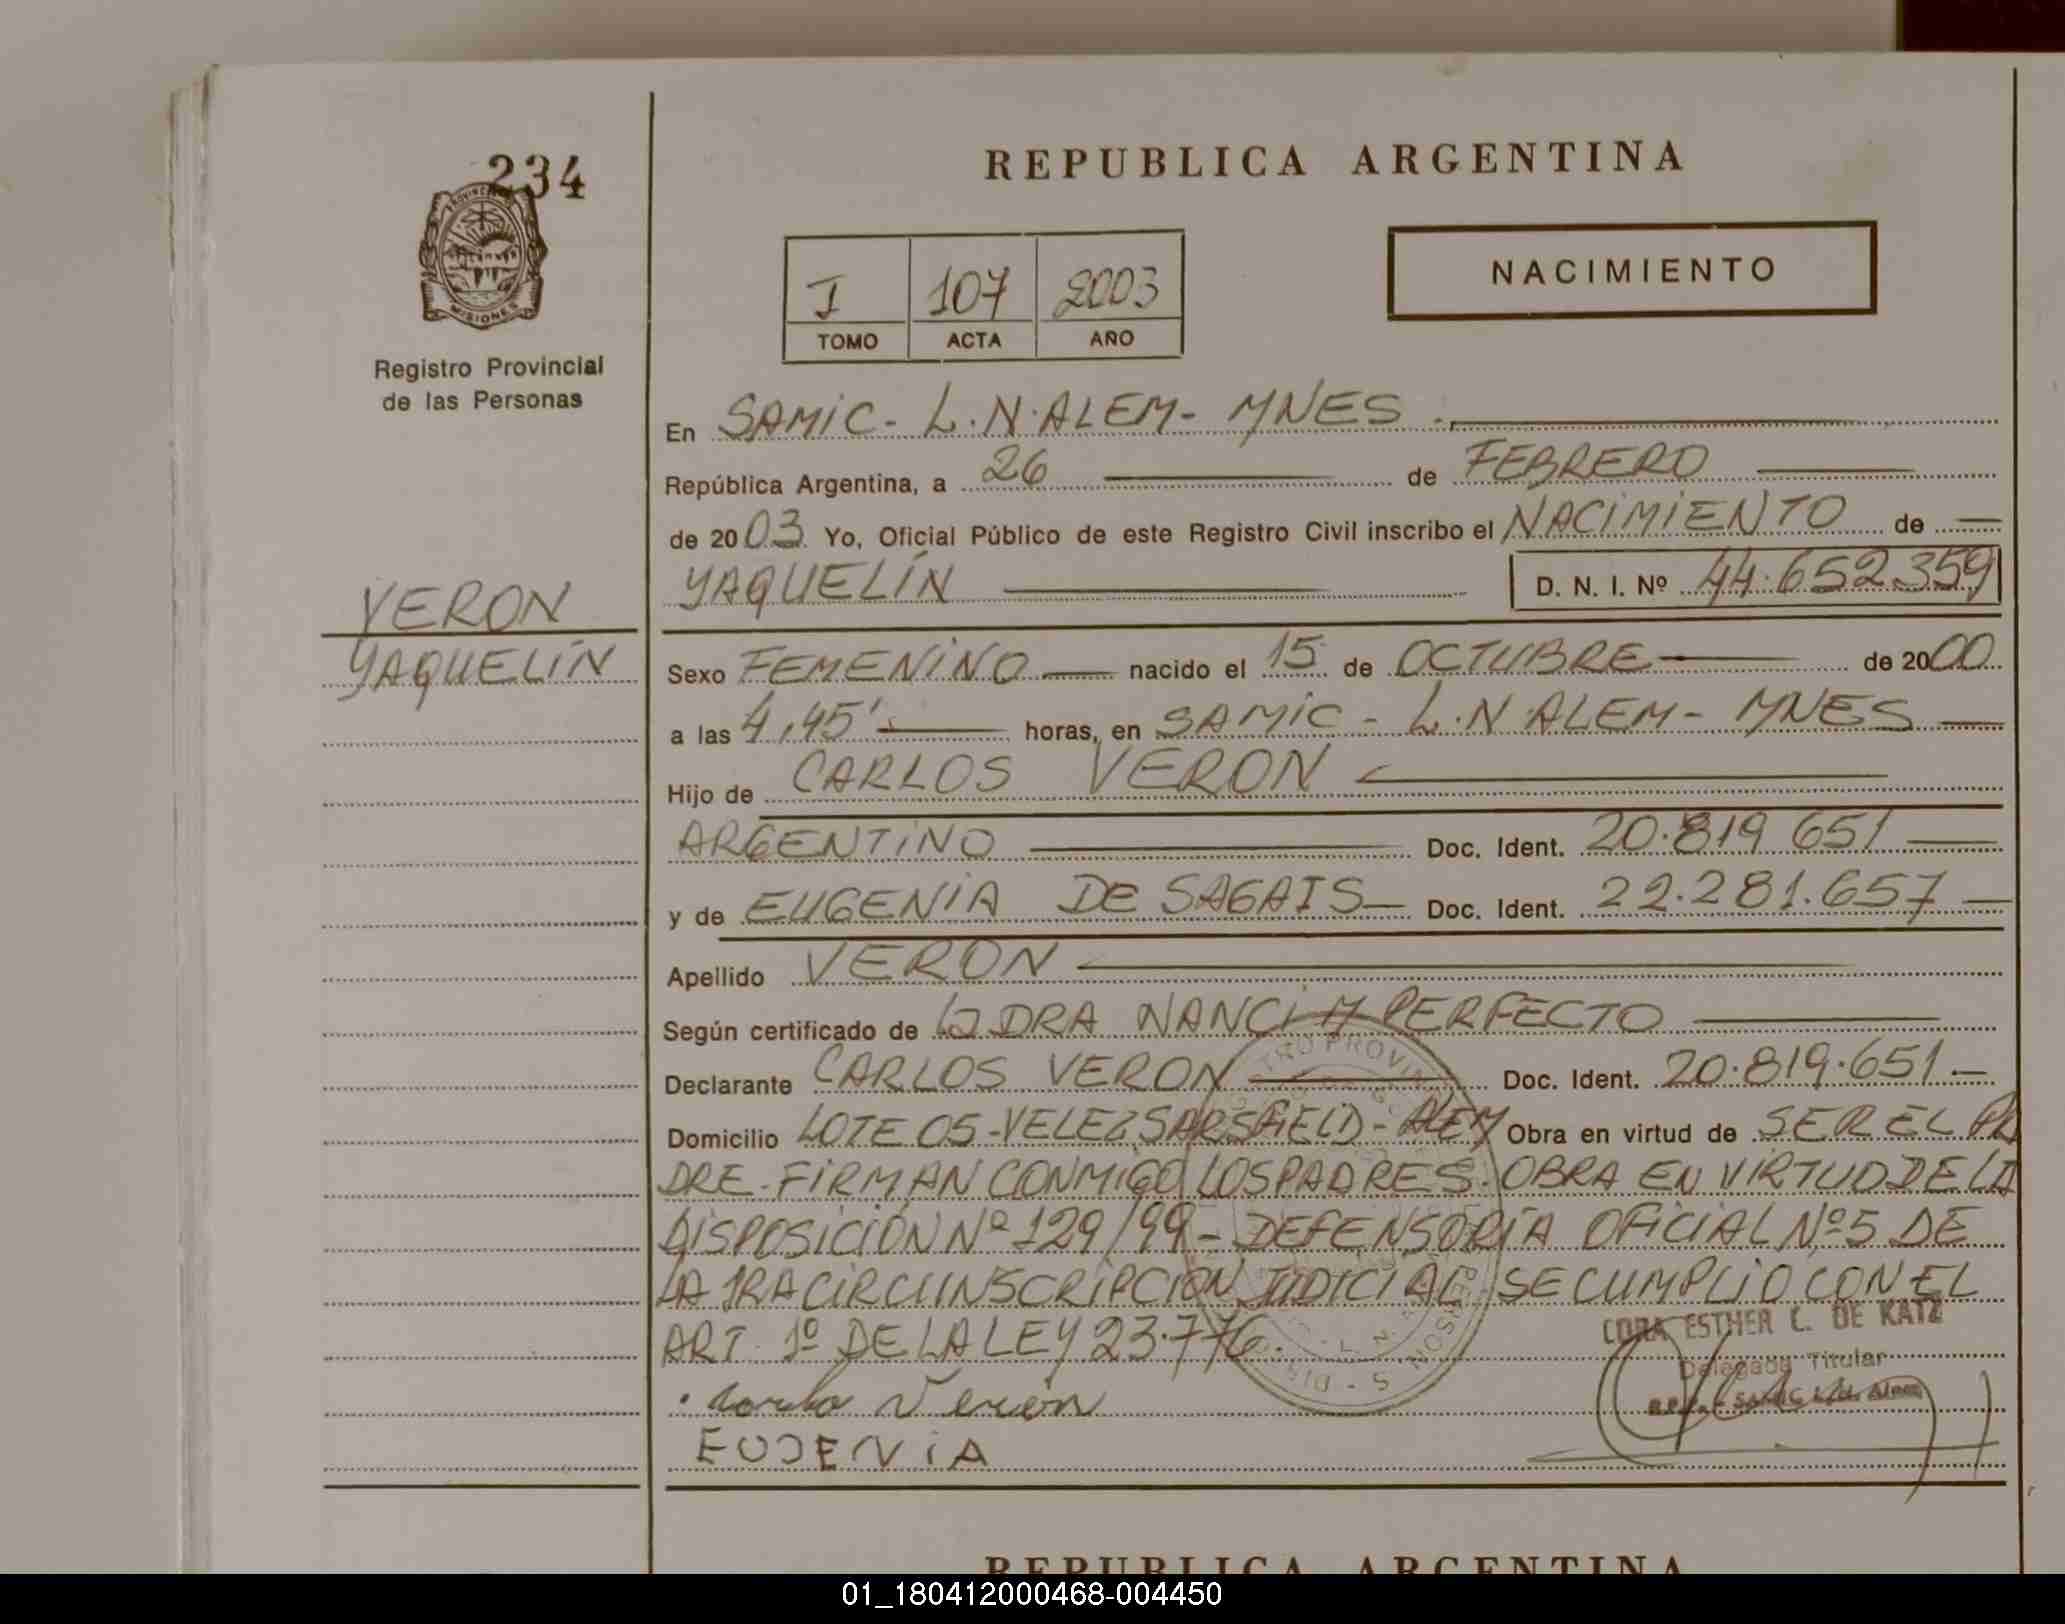 234
PROVINCIA
MISIONES
Registro Provincial
de las Personas
VERON
YAQUELÍN
REPUBLICA ARGENTINA
I 107 2003
TOMO ACTA AÑO
NACIMIENTO
En SAMIC - L.N.ALEM - MNES.
República Argentina, a 26 de FEBRERO
de 2003 Yo, Oficial Público de este Registro Civil inscribo el NACIMIENTO de
YAQUELÍN D. N. I. Nº 44.652.359
Sexo FEMENINO nacido el 15 de OCTUBRE de 2000
a las 4,45' horas, en SAMIC - L.N.ALEM - MNES
Hijo de CARLOS VERON
ARGENTINO Doc. Ident. 20.819.651
y de EUGENIA DE SAGAIS Doc. Ident. 22.281.657
Apellido VERON
Según certificado de DRA NANCI M PERFECTO
Declarante CARLOS VERON Doc. Ident. 20.819.651
Domicilio LOTE 05-VELEZ SARSFIELD - ALEM Obra en virtud de SER EL PA
DRE. FIRMAN CONMIGO LOS PADRES. OBRA EN VIRTUD DE LA
DISPOSICIÓN Nº 129/99 - DEFENSORÍA OFICIAL Nº 5 DE
LA 1RA CIRCUNSCRIPCION JUDICIAL SE CUMPLIO CON EL
ART. 1º DE LA LEY 23.776.
CORA ESTHER C. DE KATZ
Delegada Titular
Verón
EUJENIA
REPUBLICA ARGENTINA
01_180412000468-004450